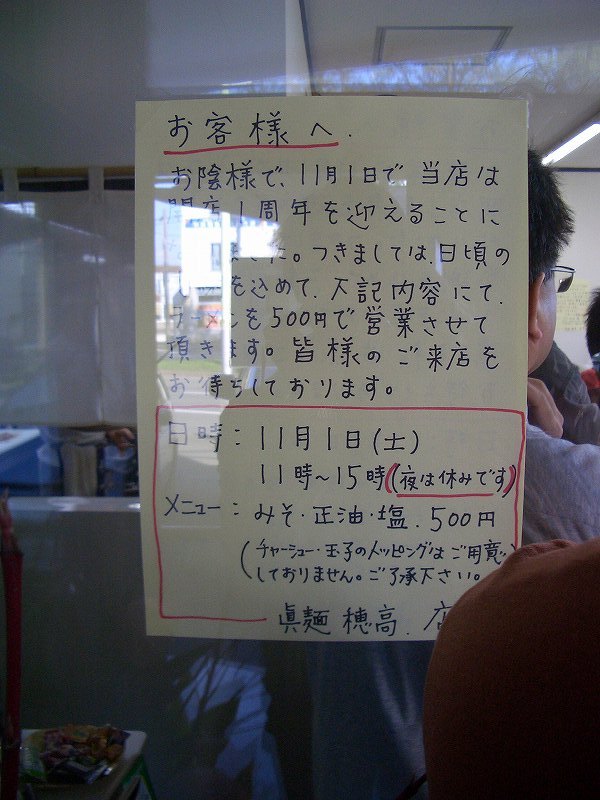 お客様へ.
お陰様で、11月1日で当店は
開店1周年を迎えることに
した。つきましては、日頃の
を込めて、下記内容にて、
ラーメンを500円で営業させて
頂きます。皆様のご来店を
お待ちしております。
日時：11月1日(土)
11時～15時(夜は休みです)
メニュー：みそ・正油・塩．500円
(チャーシュー・玉子のトッピングはご用意
しておりません。ご了承下さい。
眞麺 穂高．店